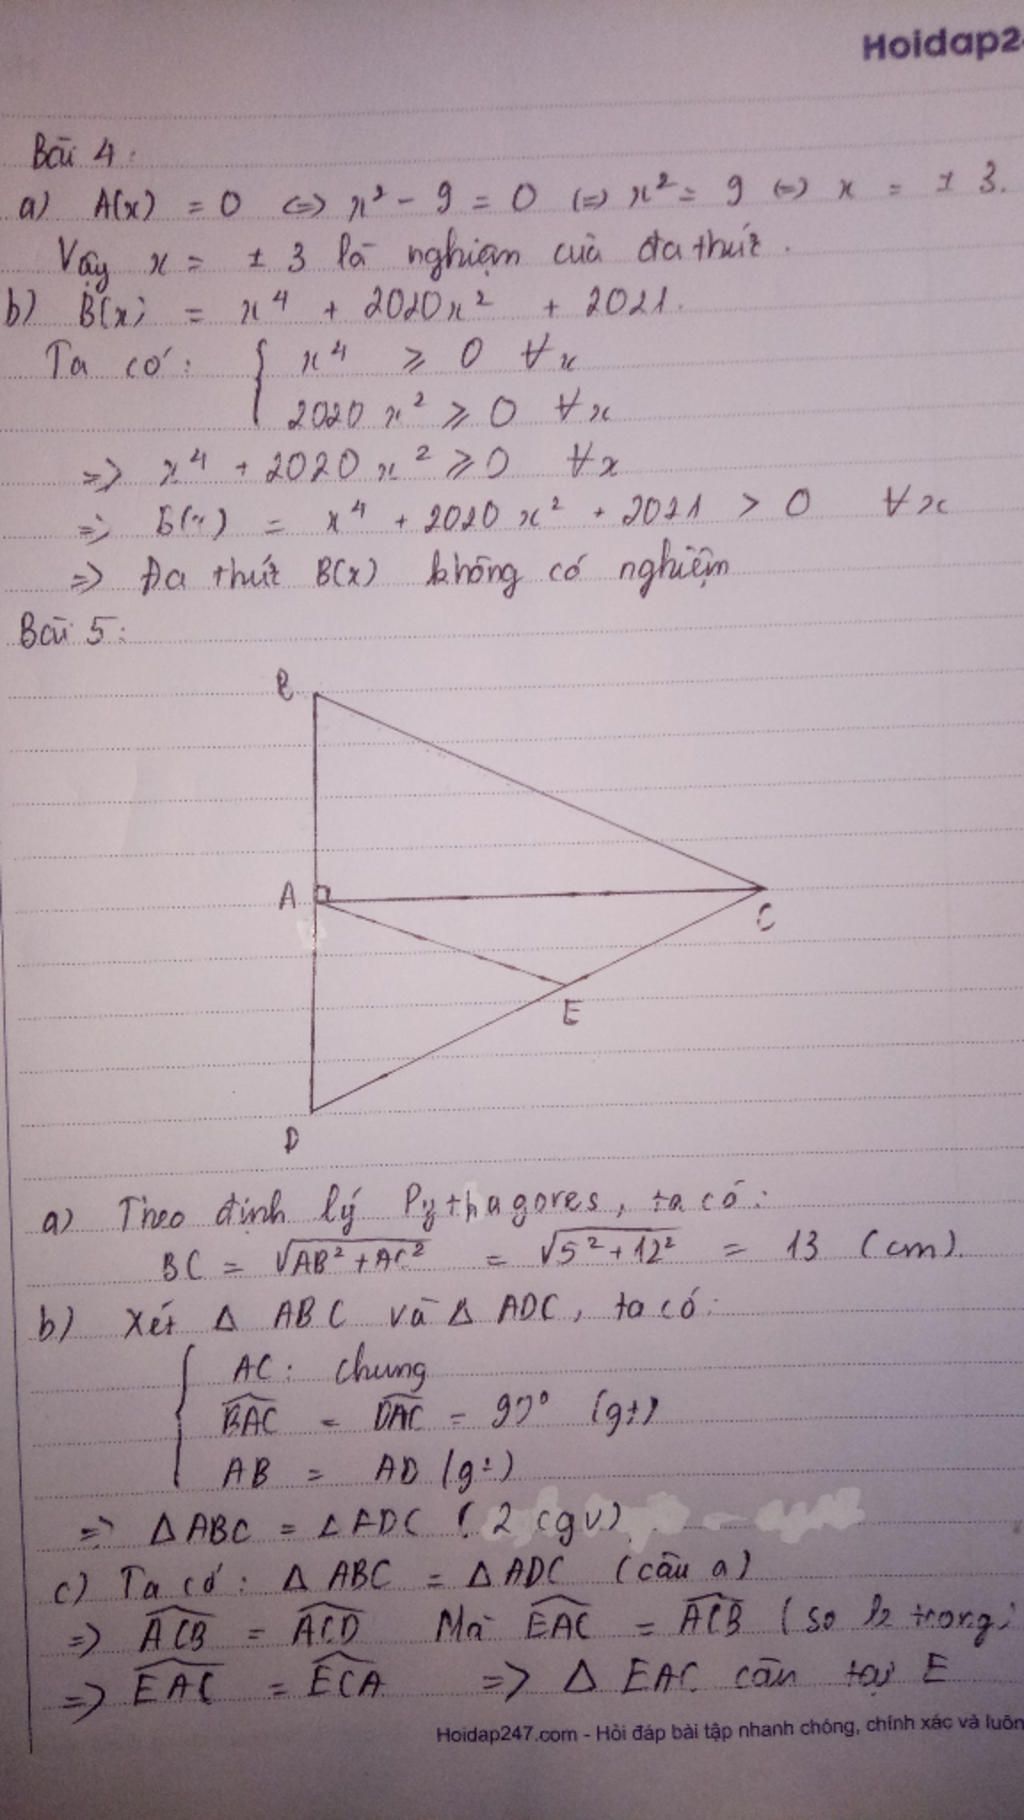 Hoidap2
Bài 4:
a) A(x) = 0 <=> x² - 9 = 0 <=> x² = 9 <=> x = ± 3.
Vậy x = ± 3 là nghiệm của đa thức.
b) B(x) = x⁴ + 2020x² + 2021.
Ta có: { x⁴ ⩾ 0 ∀x
2020 x² ⩾ 0 ∀x
=> x⁴ + 2020 x² ⩾ 0 ∀x
=> B(x) = x⁴ + 2020 x² + 2021 > 0 ∀x
=> Đa thức B(x) không có nghiệm
Bài 5:
B
A
C
E
D
a) Theo định lý Pythagores, ta có:
BC = √AB² + AC² = √5² + 12² = 13 (cm).
b) Xét Δ ABC và Δ ADC, ta có:
{ AC: chung
BAC = DAC = 90° (gt)
AB = AD (gt)
=> ΔABC = ΔADC (2 cgv)
c) Ta có: Δ ABC = Δ ADC (câu a)
=> ACB = ACD Mà EAC = ACB (so le trong)
=> EAC = ECA => Δ EAC cân tại E
Hoidap247.com - Hỏi đáp bài tập nhanh chóng, chính xác và luôn